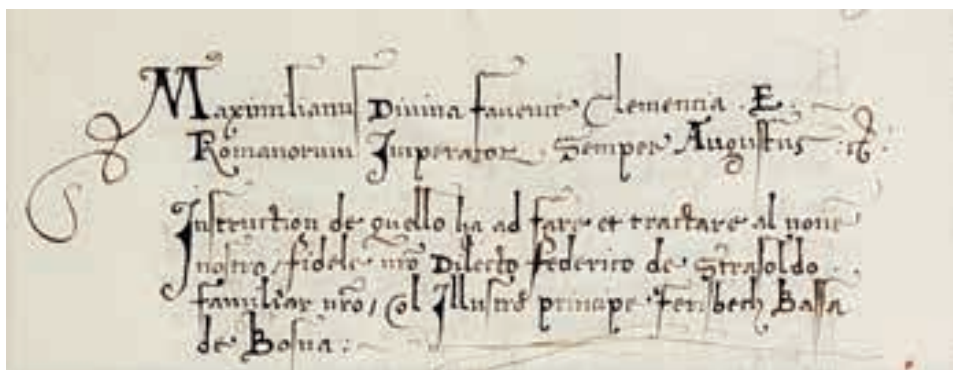 Maximilianus Divina favente Clementia . E .
Romanorum Imperator . Semper Augustus
Instruction de quello ha ad fare et tractare al nome
nostro / fidele nr̃o Dilecto Federico de Strasoldo . .
familiar nr̃o / Col Illustre principe Feribech Bassa
de Bosna :